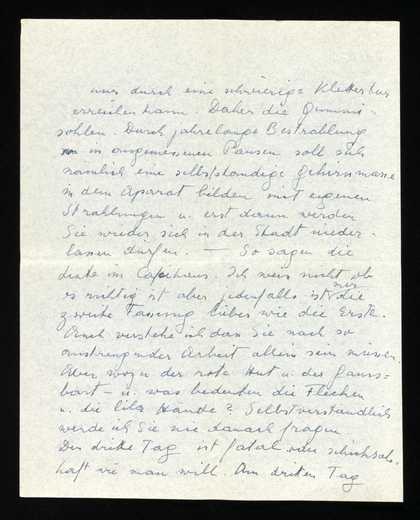 nur durch eine schwierige Klettertur
erreichen kann. Daher die Gummi-
sohlen. Durch jahrelange Bestrahlung
in angemessenen Pausen soll sich
nämlich eine selbstständige Gehirnmasse
in dem Aparat bilden mit eigenen
Strahlungen u. erst dann werden
Sie wieder sich in der Stadt nieder-
lassen dürfen. — So sagen die
Leute im Cafehaus. Ich weis nicht ob
es richtig ist aber jedenfalls ist mir die
zweite Fassung lieber wie die Erste.
Auch verstehe ich dass Sie nach so
anstrengender Arbeit allein sein müssen.
Aber wozu der rote Hut u. der
bart – u. was bedeuten die Flecken
u. die lila Hände? Selbstverständlich
werde ich Sie nie danach fragen
Der dritte Tag ist fatal oder schicksals-
haft wie man will. Am dritten Tag